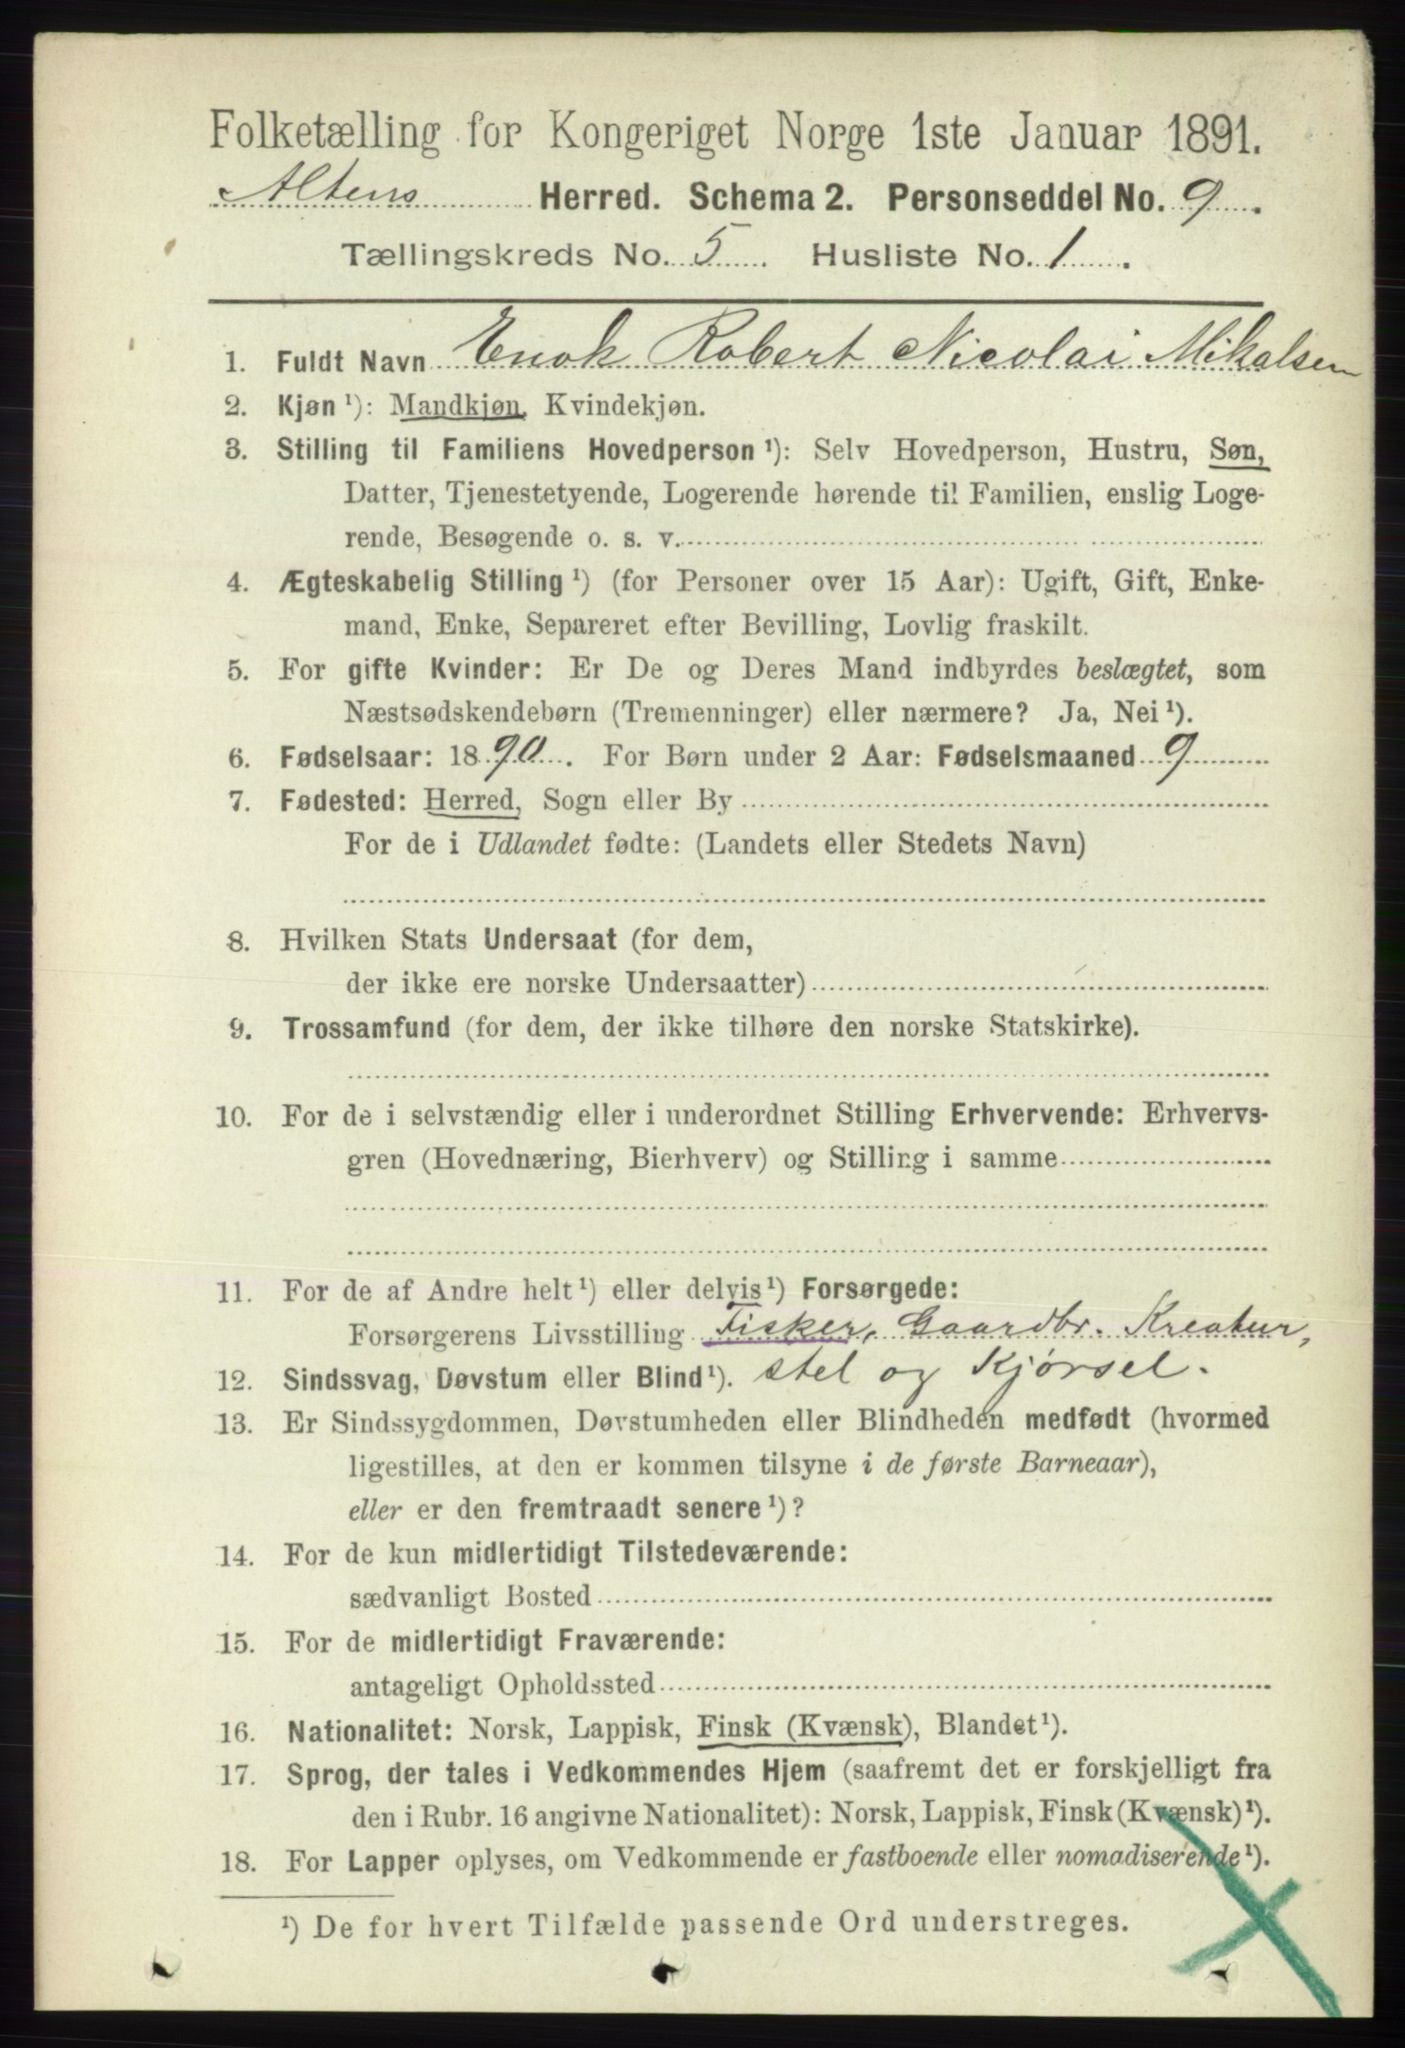 Folketælling for Kongeriget Norge 1ste Januar 1891.
Altens Herred. Schema 2. Personseddel No. 9.
Tællingskreds No. 5. Husliste No. 1.
1. Fuldt Navn Enok Robert Nicolai Mikalsen
2. Kjøn ¹): Mandkjøn, Kvindekjøn.
3. Stilling til Familiens Hovedperson ¹): Selv Hovedperson, Hustru, Søn,
Datter, Tjenestetyende, Logerende hørende til Familien, enslig Loge-
rende, Besøgende o. s. v.
4. Ægteskabelig Stilling ¹) (for Personer over 15 Aar): Ugift, Gift, Enke-
mand, Enke, Separeret efter Bevilling, Lovlig fraskilt.
5. For gifte Kvinder: Er De og Deres Mand indbyrdes beslægtet, som
Næstsødskendebørn (Tremenninger) eller nærmere? Ja, Nei ¹).
6. Fødselsaar: 1890. For Børn under 2 Aar: Fødselsmaaned 9
7. Fødested: Herred, Sogn eller By
For de i Udlandet fødte: (Landets eller Stedets Navn)
8. Hvilken Stats Undersaat (for dem,
der ikke ere norske Undersaatter)
9. Trossamfund (for dem, der ikke tilhøre den norske Statskirke).
10. For de i selvstændig eller i underordnet Stilling Erhvervende: Erhvervs-
gren (Hovednæring, Bierhverv) og Stilling i samme
11. For de af Andre helt ¹) eller delvis ¹) Forsørgede:
Forsørgerens Livsstilling Fisker, Gaardbr. Kreatur,
12. Sindssvag, Døvstum eller Blind ¹). stel og Kjørsel.
13. Er Sindssygdommen, Døvstumheden eller Blindheden medfødt (hvormed
ligestilles, at den er kommen tilsyne i de første Barneaar),
eller er den fremtraadt senere ¹)?
14. For de kun midlertidigt Tilstedeværende:
sædvanligt Bosted
15. For de midlertidigt Fraværende:
antageligt Opholdssted
16. Nationalitet: Norsk, Lappisk, Finsk (Kvænsk), Blandet ¹).
17. Sprog, der tales i Vedkommendes Hjem (saafremt det er forskjelligt fra
den i Rubr. 16 angivne Nationalitet): Norsk, Lappisk, Finsk (Kvænsk) ¹).
18. For Lapper oplyses, om Vedkommende er fastboende eller nomadiserende ¹).
¹) De for hvert Tilfælde passende Ord understreges.